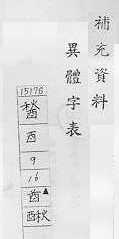 補充資料
異體字表
15176
酉
9
16